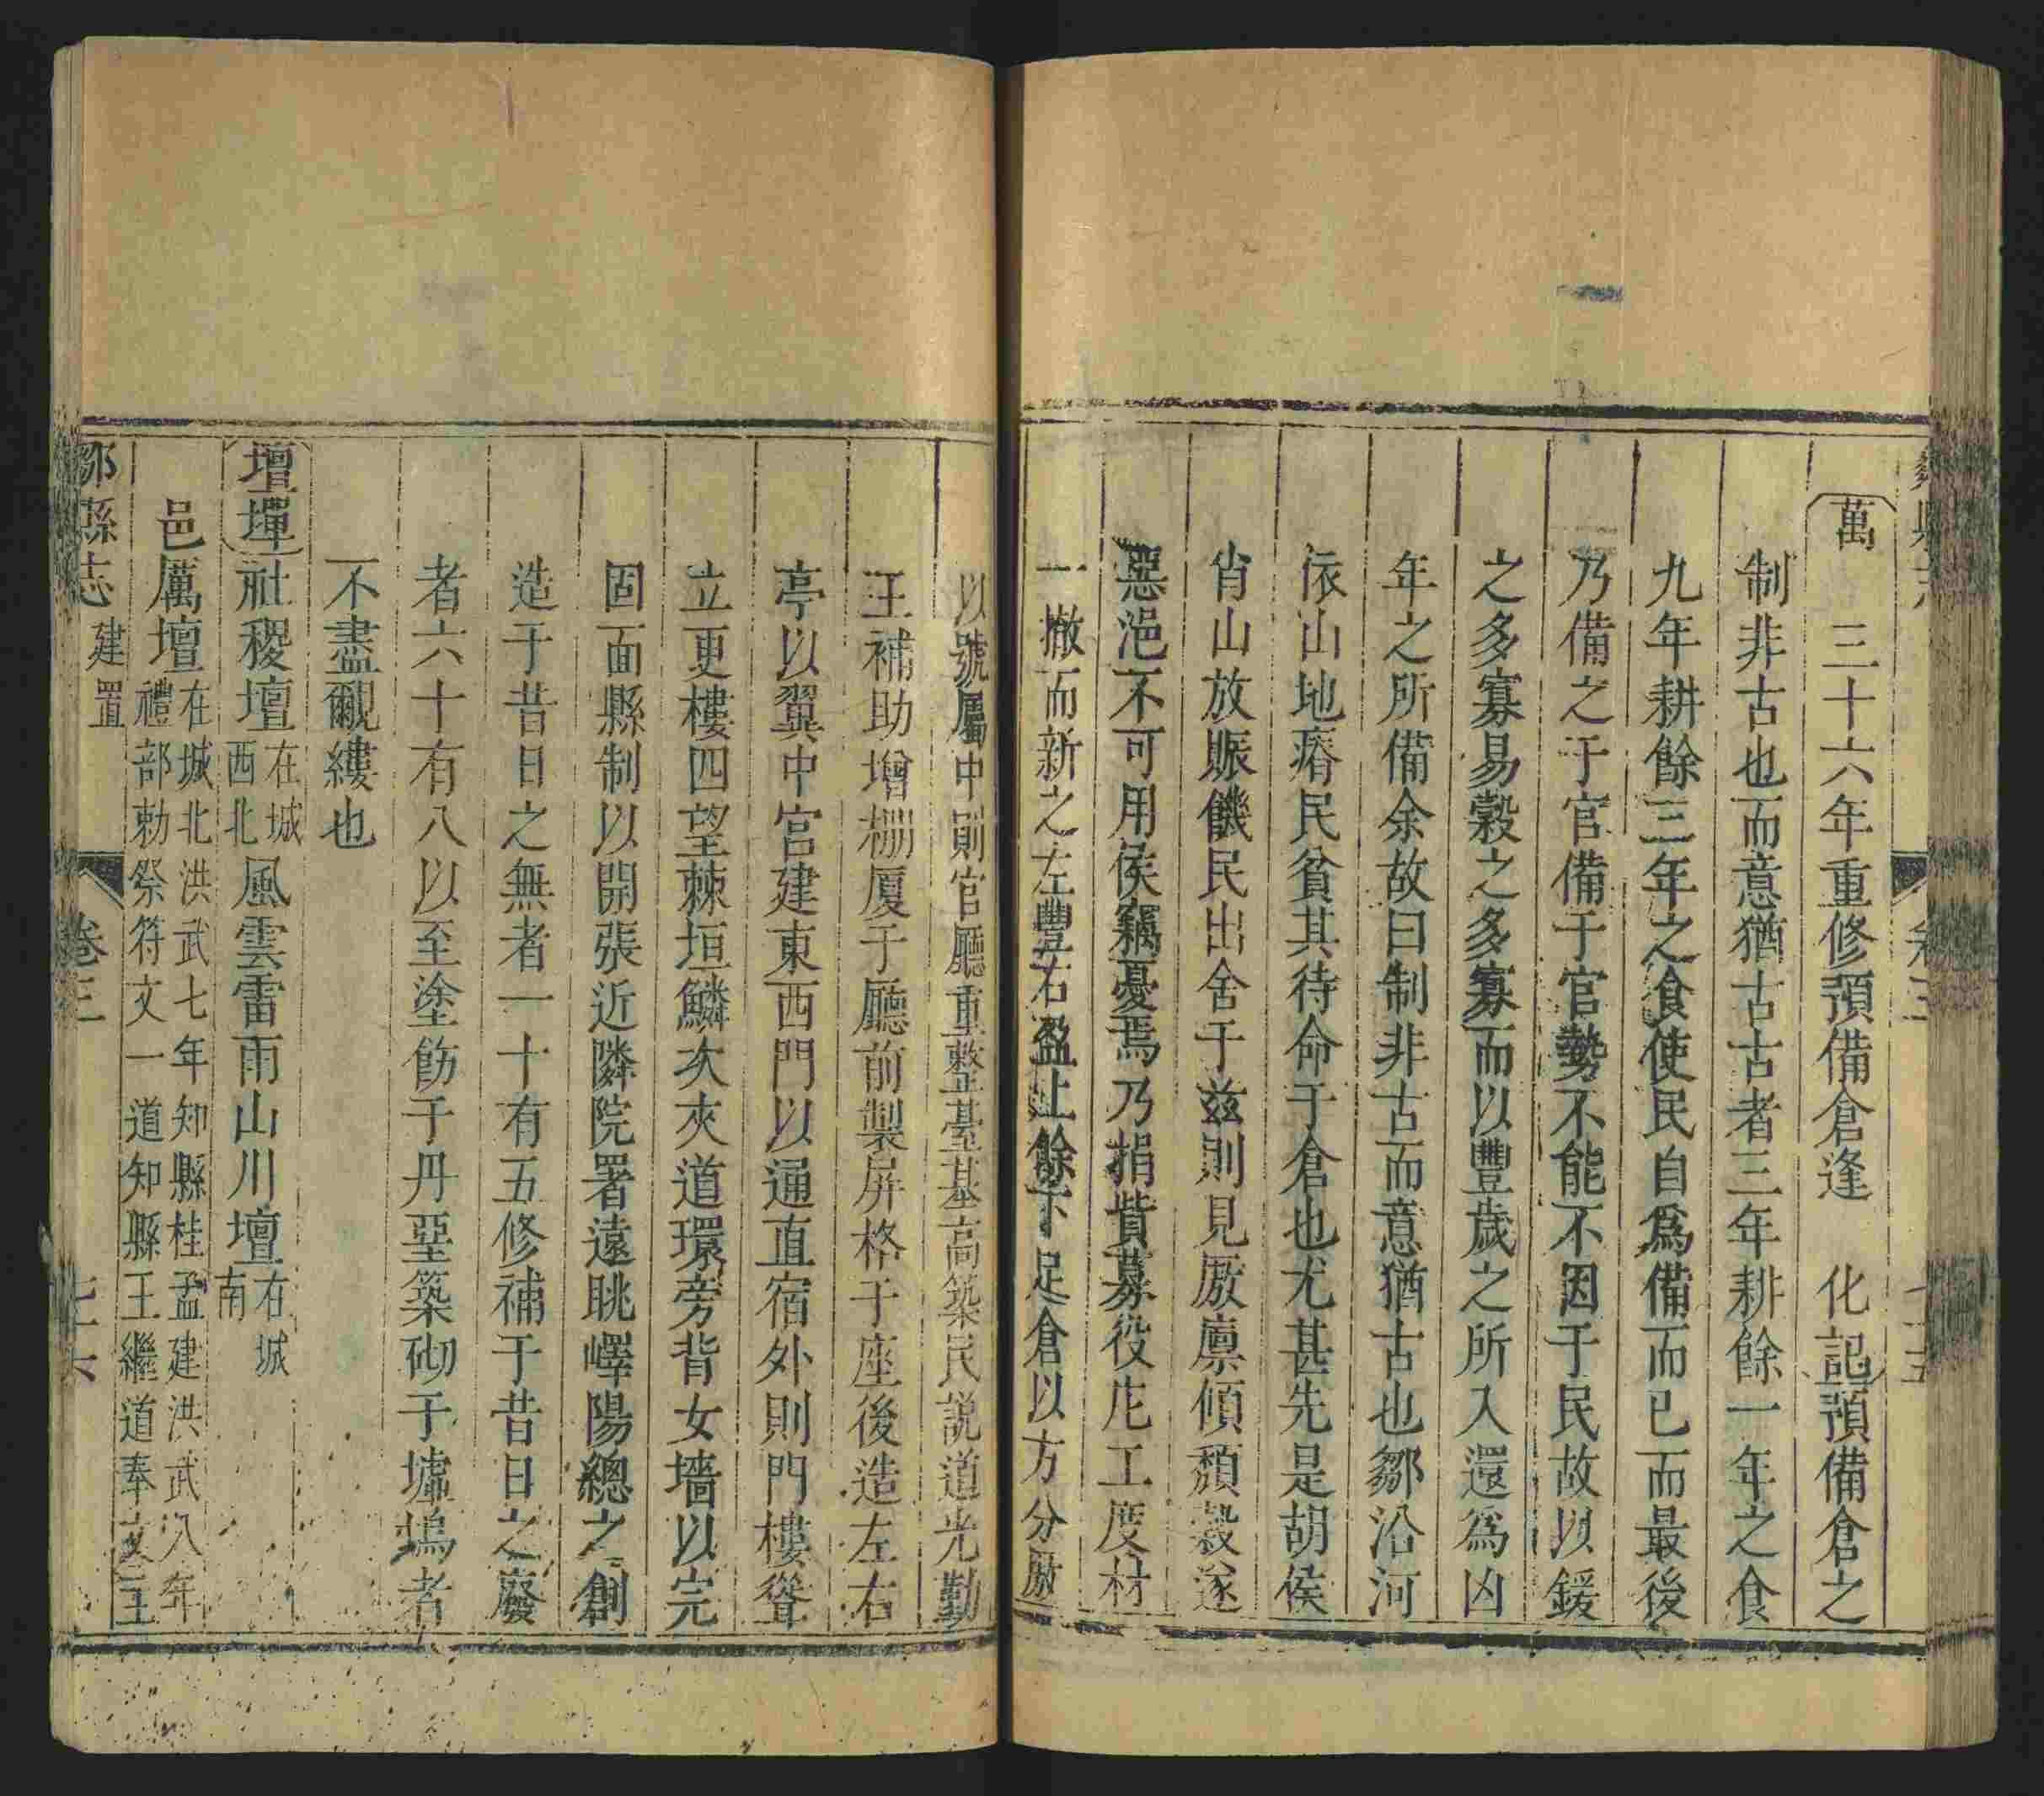 萬　三十六年重修預備倉逢　化記預備倉之
制非古也而意猶古古者三年耕餘一年之食
九年耕餘三年之食使民自爲備而已而最後
乃備之于官備于官勢不能不因于民故以鍰
之多寡易穀之多寡而以豐歲之所入還爲凶
年之所備余故曰制非古而意猶古也鄒沿河
依山地瘠民貧其待命于倉也尤甚先是胡侯
肖山放賑饑民出舍于兹則見厫廪傾頽穀遂
惡浥不可用侯竊憂焉乃捐貲募役庀工度材
一撤而新之左豐右盈止餘下足倉以方分厫
以號屬中則官廳重整臺基高築民説道光勤
王補助增棚厦于廳前製屏格于座後造左右
亭以翼中宮建東西門以通直宿外則門樓聳
立更樓四望棘垣鱗次夾道環旁背女墻以完
固面縣制以開張近隣院署遠眺嶧陽總之創
造于昔日之無者一十有五修補于昔日之廢
者六十有八以至塗飭于丹堊築砌于墟塢者
不盡覼縷也
壇墠社稷壇在城西北風雲雷雨山川壇右城南
邑厲壇在城北洪武七年知縣桂孟建洪武八年
禮部勅祭符文一道知縣王繼道奉文立
鄒縣志　建置　卷三　七十六